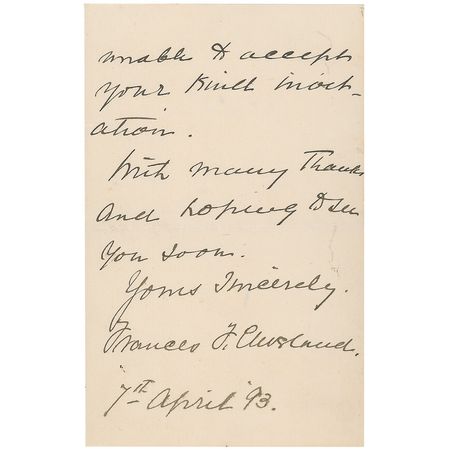 unable to accept
your kind invit-
ation.
With many thanks
and hoping to see
you soon.
Yours Sincerely.
Frances F. Cleveland.
7th April '93.